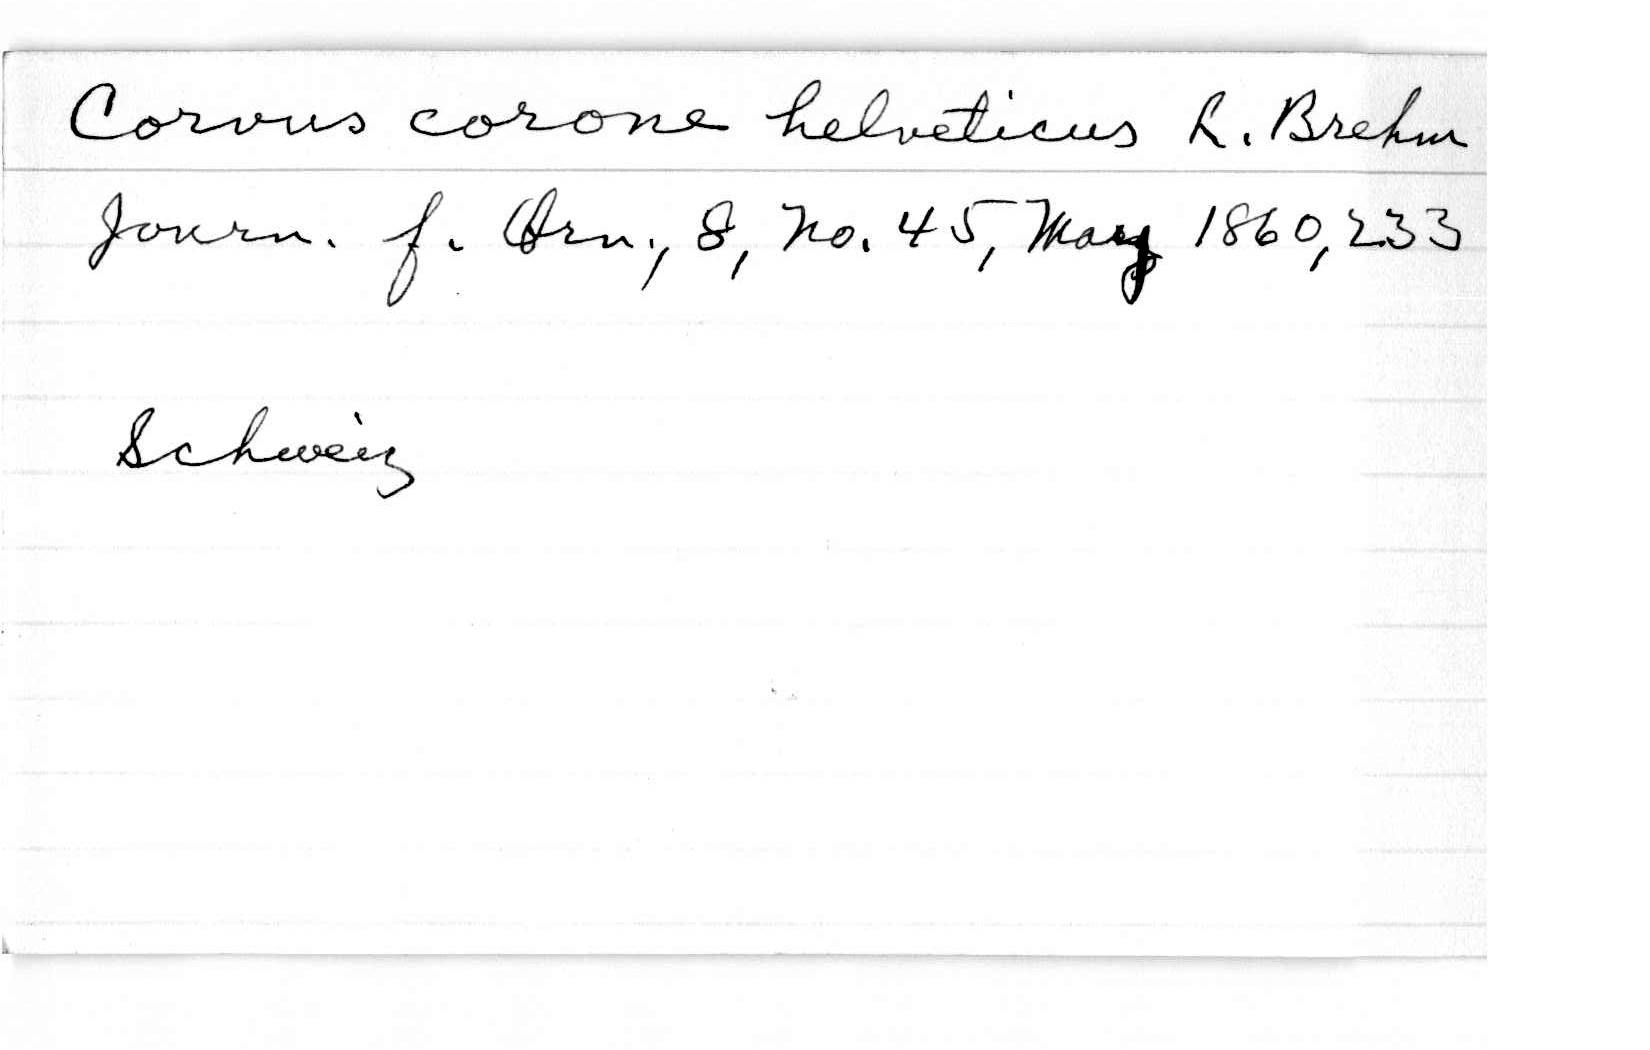 Corvus corone helveticus L. Brehm
Journ. f. Orn., 8, no. 45, May 1860, 233
Schweiz